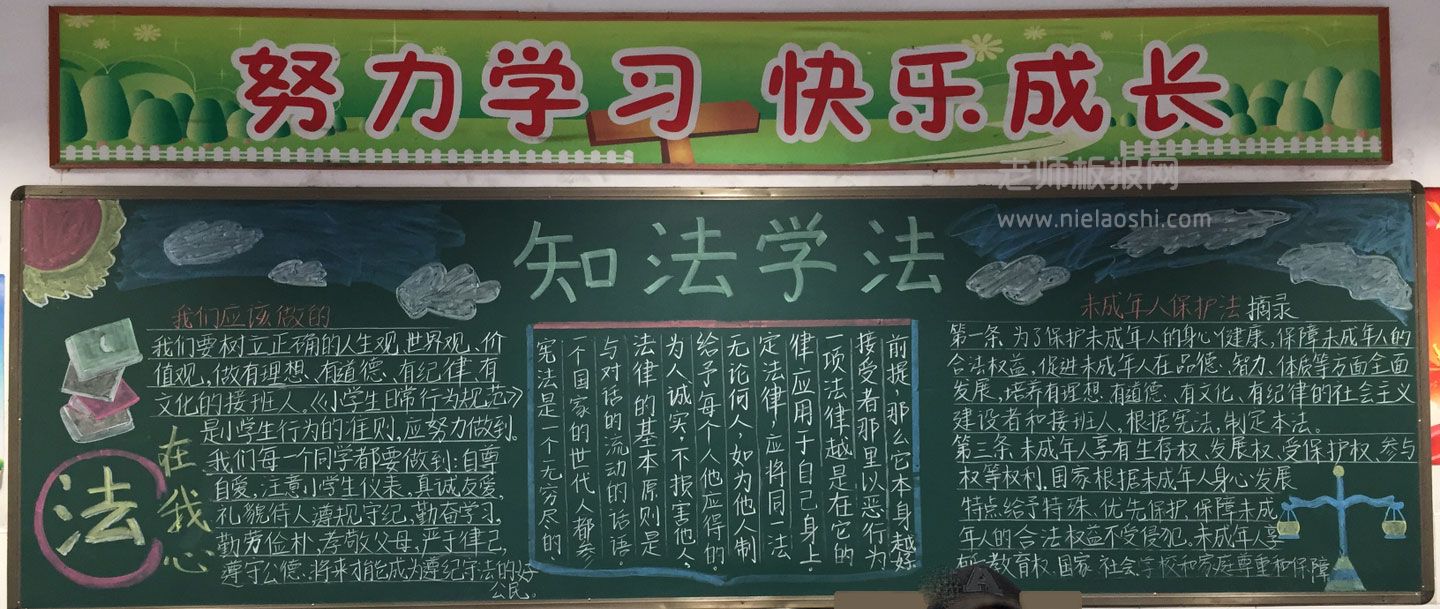 努力学习 快乐成长
老师板报网
www.nielaoshi.com
知法学法
我们应该做的
我们要树立正确的人生观、世界观、价
值观,做有理想、有道德、有纪律、有
文化的接班人。《小学生日常行为规范》
是小学生行为的准则,应努力做到。
我们每一个同学都要做到:自尊
自爱,注意小学生仪表,真诚友爱,
礼貌待人,遵规守纪,勤奋学习,
勤劳俭朴,孝敬父母,严于律己,
遵守公德,将来才能成为遵纪守法的好
公民。
法
在我心
宪法是一个无穷尽的
一个国家的世代人都参
与对话的流动的话语。
法律的基本原则是
为人诚实,不损害他人,
给予每个人他应得的。
无论何人,如为他人制
定法律,应将同一法
律应用于自己身上。
一项法律越是在它的
接受者那里以恶行为
前提,那么它本身越好
未成年人保护法 摘录
第一条 为了保护未成年人的身心健康,保障未成年人的
合法权益,促进未成年人在品德、智力、体质等方面全面
发展,培养有理想、有道德、有文化、有纪律的社会主义
建设者和接班人。根据宪法,制定本法。
第三条 未成年人享有生存权、发展权、受保护权、参与
权等权利,国家根据未成年人身心发展
特点给予特殊、优先保护,保障未成
年人的合法权益不受侵犯。未成年人享
教育权,国家、社会、学校和家庭尊重和保障